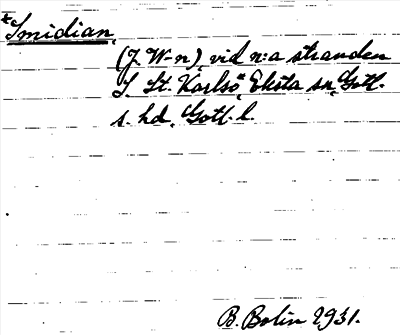 *Smidian,
(J. W-n), vid n:a stranden
I. St. Karlsö, Eksta sn, Gotl.
s. hd, Gotl. l.
B. Bolin 1931.